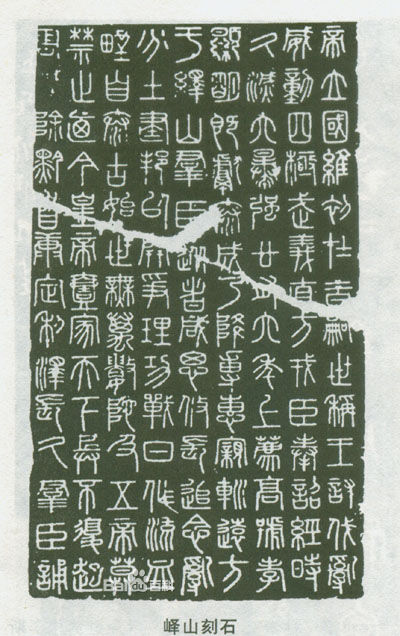 帝立國維初在昔嗣世稱王討伐亂
威動四極武義直方戎臣奉詔經時
久滅六暴強廿有六年上薦高號孝
顯明既獻泰成乃降尃惠寴巡遠方
于繹山群臣從者咸思攸長追念亂
分土建邦以開爭理功戰日作流血
野自泰古始世無萬數陀及五帝莫
禁止廼今皇帝壹家天下兵不復起
害滅除黔首康定利澤長久群臣誦
Bai百科
峄山刻石